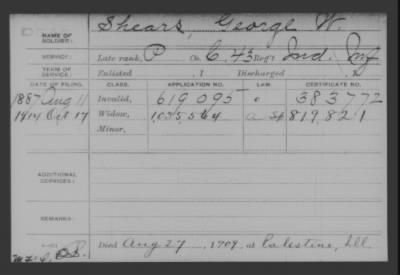 NAME OF SOLDIER: Shears, George W.
SERVICE: Late rank, P Co. C, 43 Reg't Ind. Inf
TERM OF SERVICE: Enlisted , 1 Discharged , 1
DATE OF FILING. CLASS. APPLICATION NO. LAW. CERTIFICATE NO.
1887 Aug 11 Invalid, 619095 383772
1914 Oct 17 Widow, 1035564 819821
Minor,
ADDITIONAL SERVICES:
REMARKS:
Died Aug 27, 1909, at Palestine, Ill.